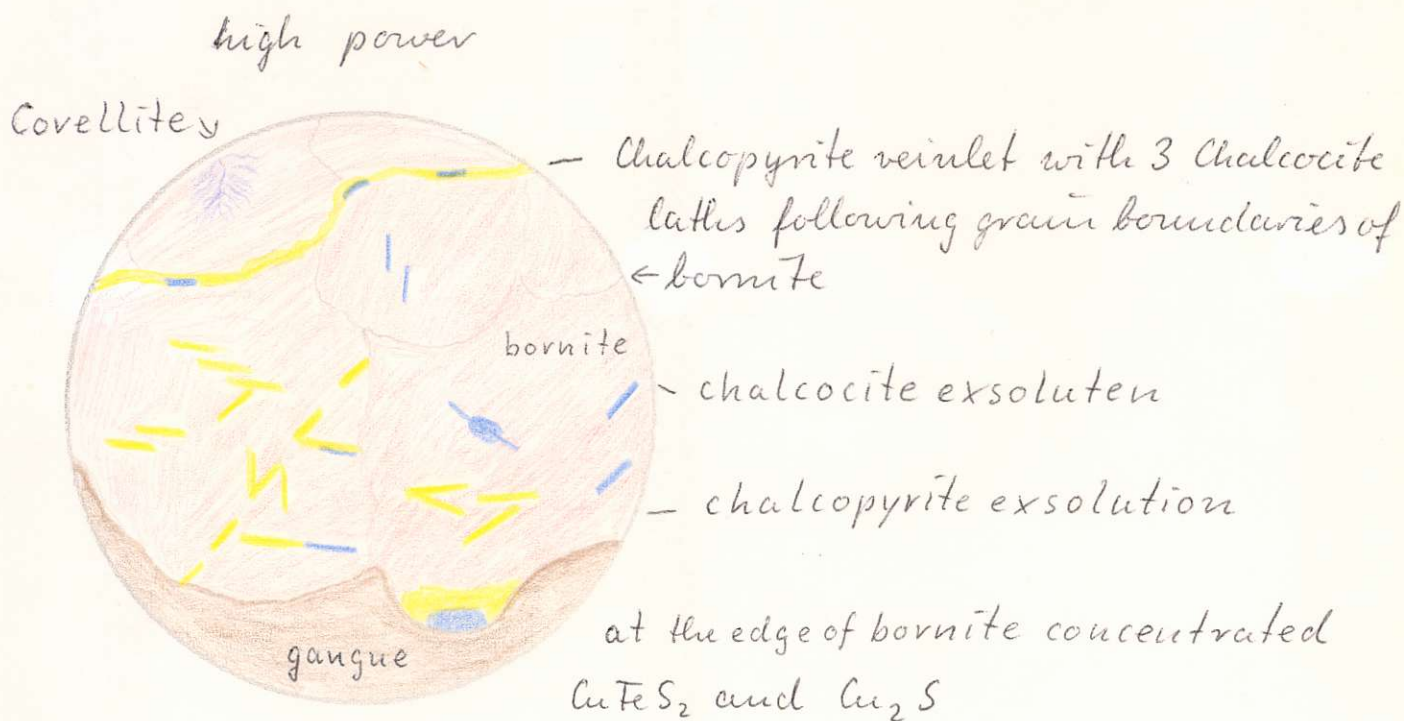 high power
Covellite
Chalcopyrite veinlet with 3 Chalcocite
laths following grain boundaries of
bornite
bornite
chalcocite exsoluten
chalcopyrite exsolution
at the edge of bornite concentrated
CuFeS₂ and Cu₂S
gangue